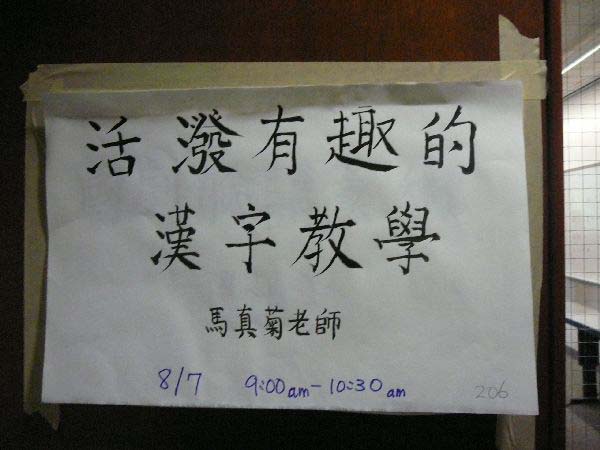 活潑有趣的
漢字教學
馬真菊老師
8/7 9:00am-10:30am
206